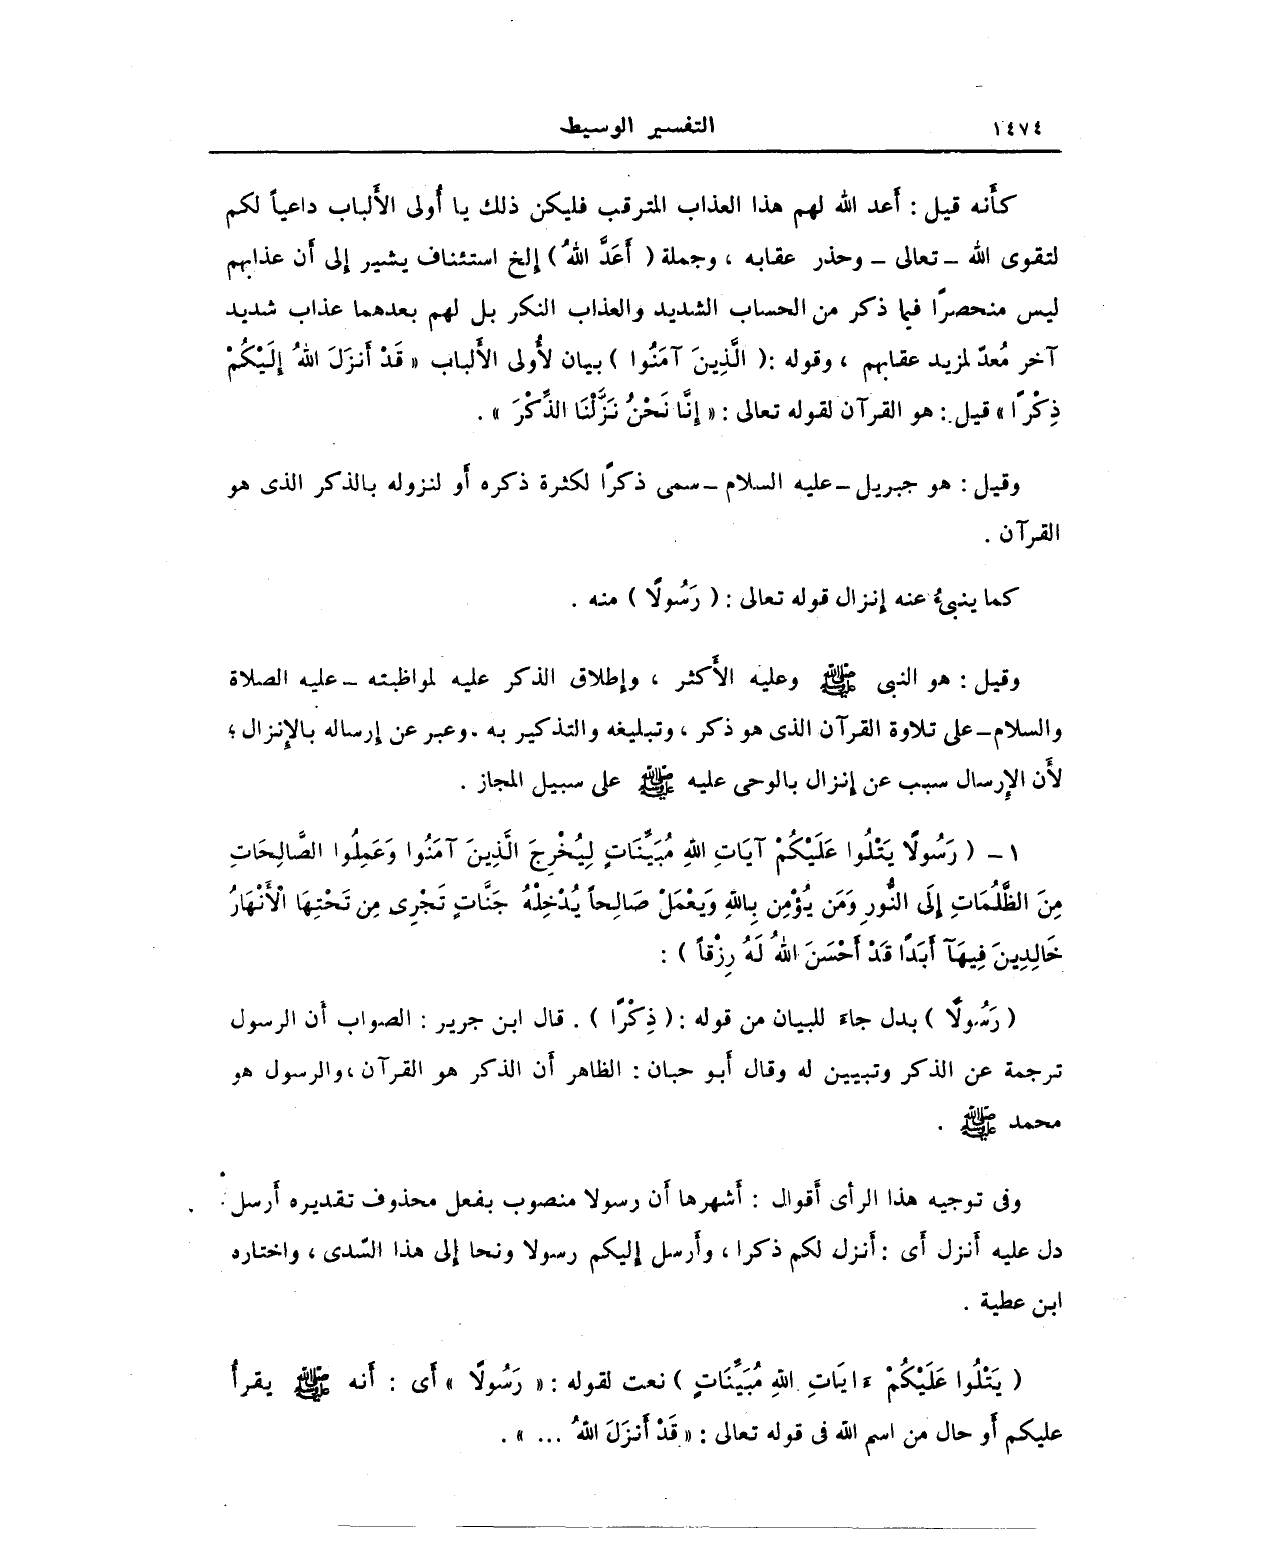 ١٤٧٤ التفسير الوسيط
كأَنه قيل : أَعد الله لهم هذا العذاب المترقب فليكن ذلك يا أُولى الأَلباب داعياً لكم
لتقوى الله ـ تعالى ـ وحذر عقابه ، وجملة ( أَعَدَّ اللهُ ) إلخ استئناف يشير إلى أَن عذابهم
ليس منحصرًا فيما ذكر من الحساب الشديد والعذاب النكر بل لهم بعدهما عذاب شديد
آخر مُعدّ لمزيد عقابهم ، وقوله : ( الَّذِينَ آمَنُوا ) بيان لأُولى الأَلباب « قَدْ أَنزَلَ اللهُ إِلَيْكُمْ
ذِكْرًا » قيل : هو القرآن لقوله تعالى : « إِنَّا نَحْنُ نَزَّلْنَا الذِّكْرَ » .
وقيل : هو جبريل ـ عليه السلام ـ سمى ذكرًا لكثرة ذكره أَو لنزوله بالذكر الذى هو
القرآن .
كما ينبىءُ عنه إنزال قوله تعالى : ( رَسُولًا ) منه .
وقيل : هو النبى ﷺ وعليه الأَكثر ، وإطلاق الذكر عليه لمواظبته ـ عليه الصلاة
والسلام ـ على تلاوة القرآن الذى هو ذكر ، وتبليغه والتذكير به . وعبر عن إرساله بالإنزال ؛
لأَن الإرسال سبب عن إنزال بالوحى عليه ﷺ على سبيل المجاز .
١ ـ ( رَسُولًا يَتْلُوا عَلَيْكُمْ آيَاتِ اللهِ مُبَيِّنَاتٍ لِيُخْرِجَ الَّذِينَ آمَنُوا وَعَمِلُوا الصَّالِحَاتِ
مِنَ الظُّلُمَاتِ إِلَى النُّورِ وَمَن يُؤْمِن بِاللهِ وَيَعْمَلْ صَالِحاً يُدْخِلْهُ جَنَّاتٍ تَجْرِى مِن تَحْتِهَا الْأَنْهَارُ
خَالِدِينَ فِيهَآ أَبَدًا قَدْ أَحْسَنَ اللهُ لَهُ رِزْقاً ) :
( رَسُولًا ) بدل جاءَ للبيان من قوله : ( ذِكْرًا ) . قال ابن جرير : الصواب أن الرسول
ترجمة عن الذكر وتبيين له وقال أَبو حبان : الظاهر أن الذكر هو القرآن ، والرسول هو
محمد ﷺ .
وفى توجيه هذا الرأى أَقوال : أَشهرها أَن رسولا منصوب بفعل محذوف تقديره أَرسل
دل عليه أَنزل أَى : أَنزل لكم ذكرا ، وأَرسل إليكم رسولا ونحا إلى هذا السّدى ، واختاره
ابن عطية .
( يَتْلُوا عَلَيْكُمْ ءَايَاتِ اللهِ مُبَيِّنَاتٍ ) نعت لقوله : « رَسُولًا » أَى : أَنه ﷺ يقرأُ
عليكم أَو حال من اسم الله فى قوله تعالى : « قَدْ أَنزَلَ اللهُ ... » .